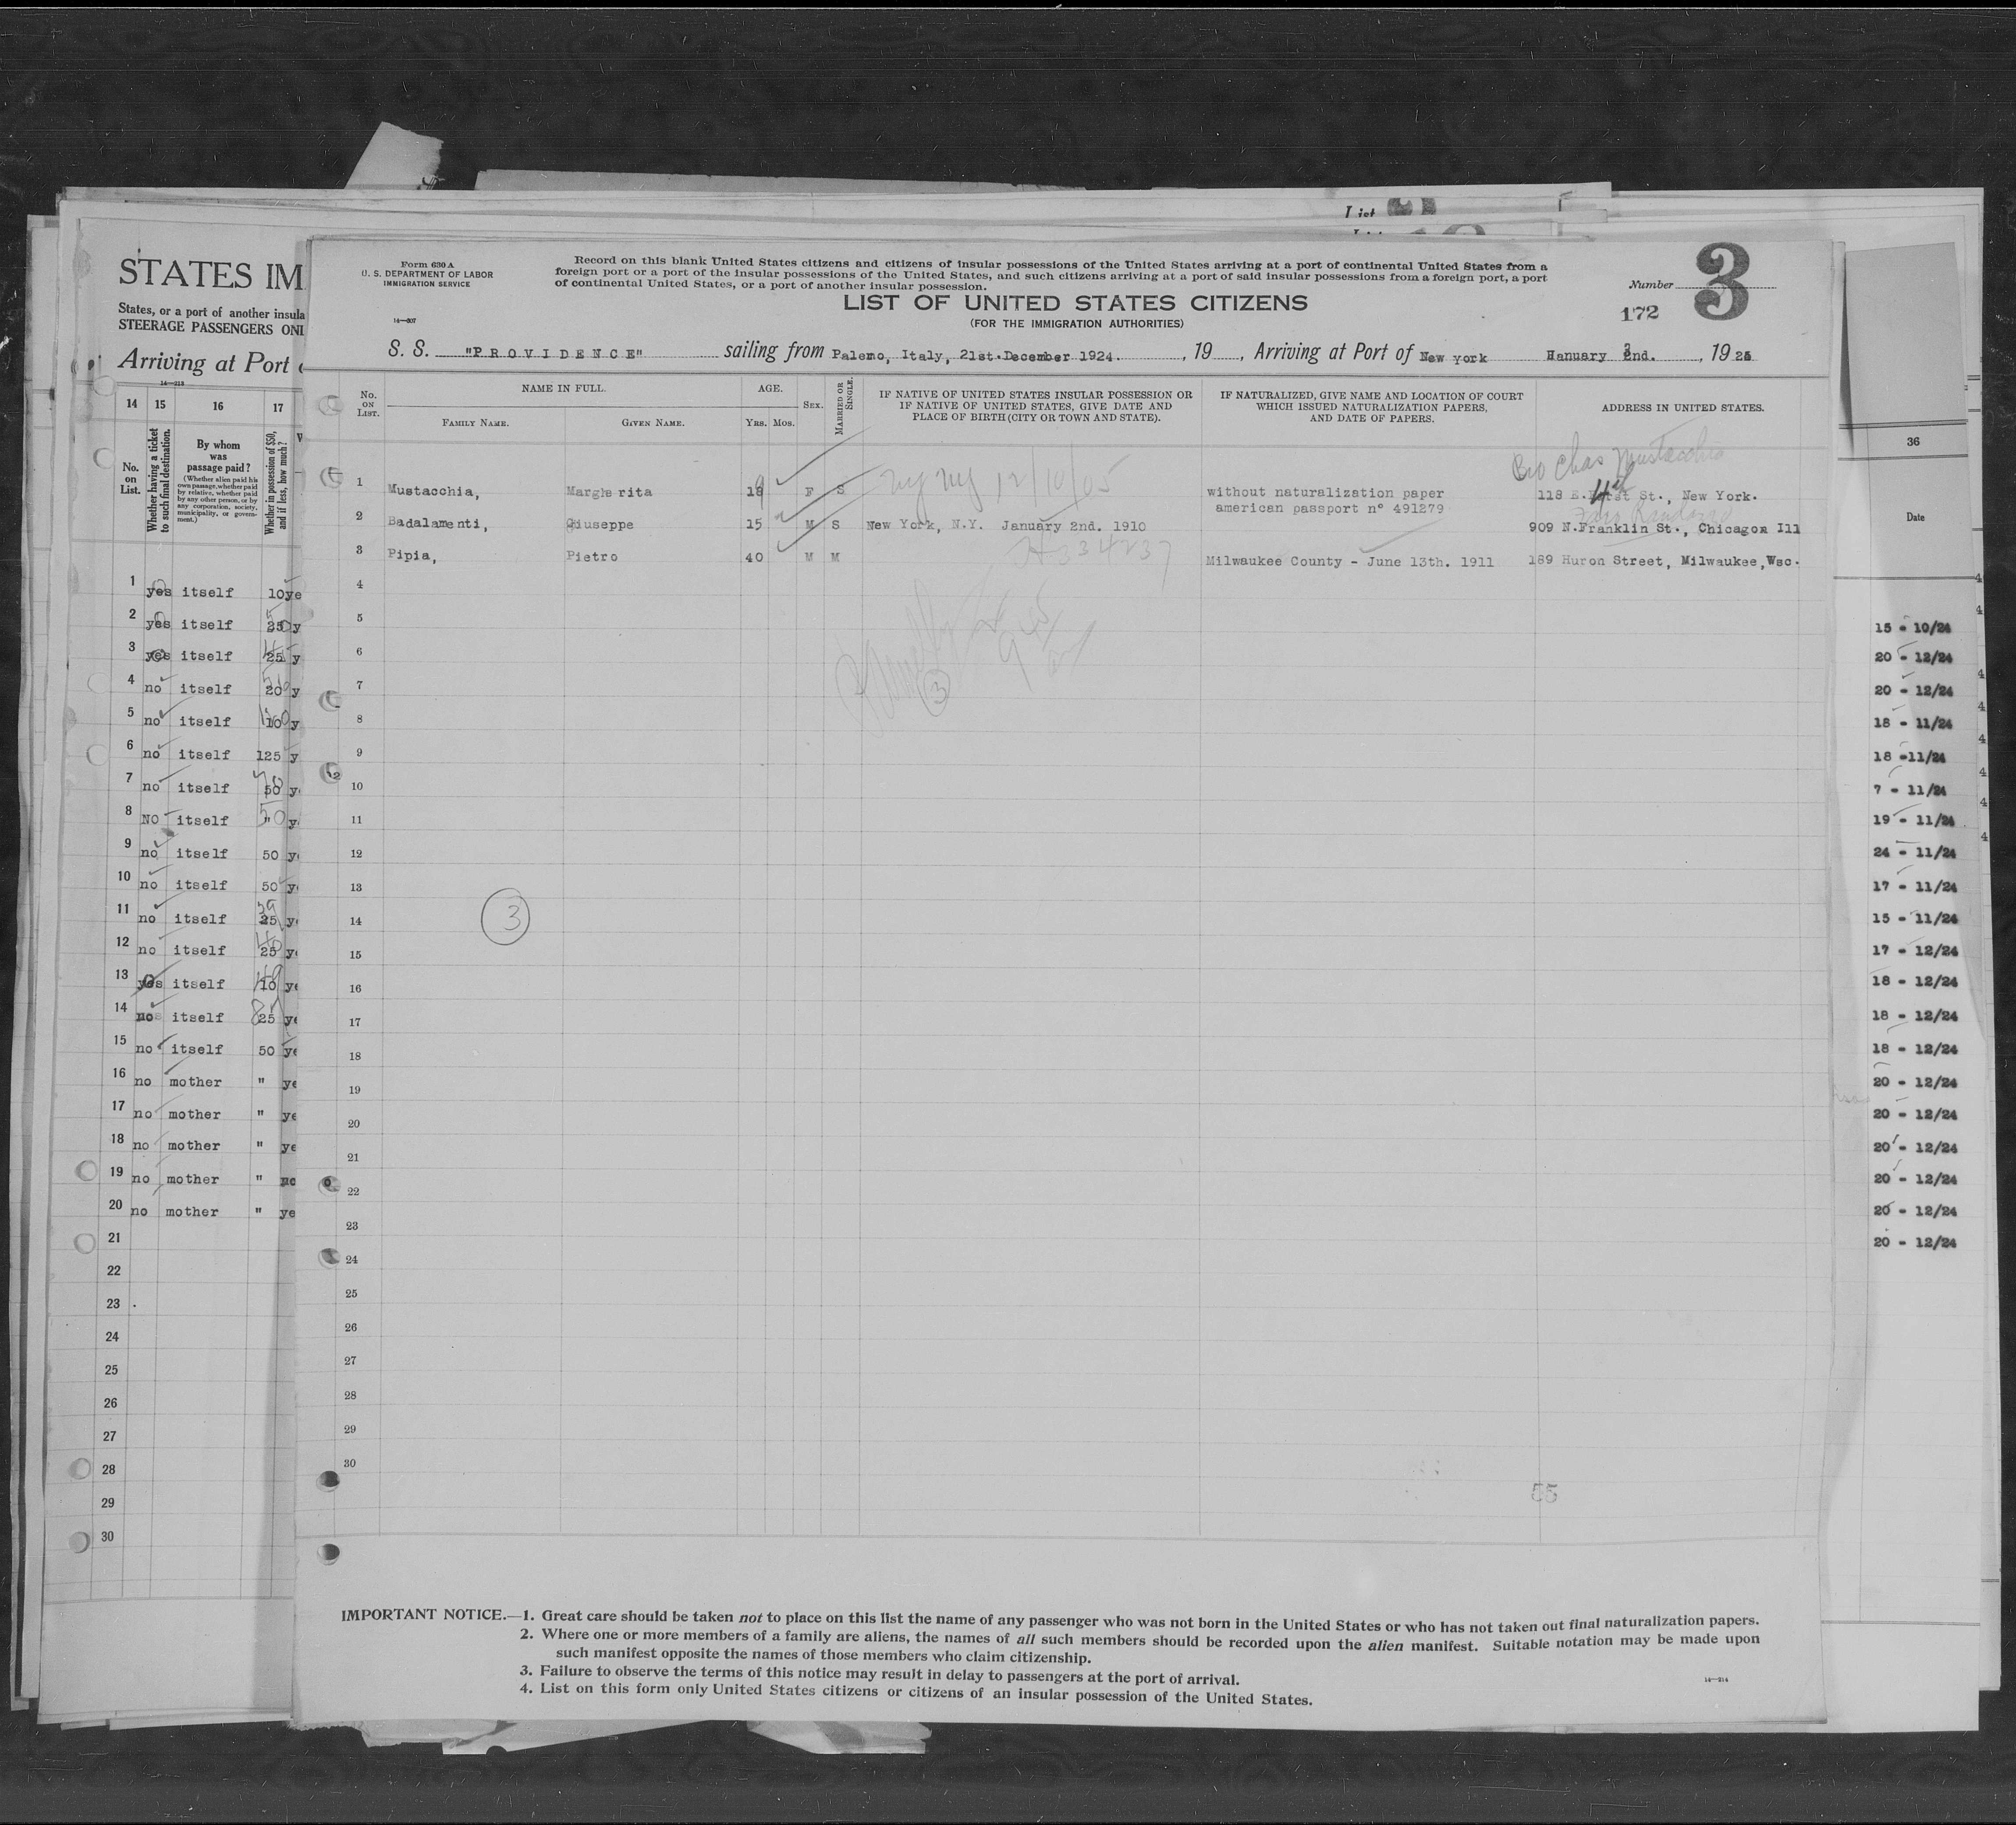 List
STATES IM
States, or a port of another insula
STEERAGE PASSENGERS ONL
Arriving at Port
14—213
14 15 16 17
No. on List.
Whether having a ticket to such final destination.
By whom was passage paid?
(Whether alien paid his own passage, whether paid by relative, whether paid by any other person, or by any corporation, society, municipality, or government.)
Whether in possession of $50, and if less, how much?
1 yes itself 10 ye
2 yes itself 25 y
3 yes itself 25 y
4 no itself 20 y
5 no itself 100 y
6 no itself 125 y
7 no itself 50 y
8 NO itself " y
9 no itself 50 y
10 no itself 50 y
11 no itself 25 y
12 no itself 25 ye
13 yes itself 10 ye
14 no itself 25 ye
15 no itself 50 ye
16 no mother " ye
17 no mother " ye
18 no mother " ye
19 no mother " no
20 no mother " ye
21
22
23
24
25
26
27
28
29
30
Form 630 A
U. S. DEPARTMENT OF LABOR
IMMIGRATION SERVICE
14—307
Record on this blank United States citizens and citizens of insular possessions of the United States arriving at a port of continental United States from a
foreign port or a port of the insular possessions of the United States, and such citizens arriving at a port of said insular possessions from a foreign port, a port
of continental United States, or a port of another insular possession.
LIST OF UNITED STATES CITIZENS
(FOR THE IMMIGRATION AUTHORITIES)
Number 3
172
S. S. "PROVIDENCE" sailing from Palemo, Italy, 21st.December 1924. , 19 , Arriving at Port of New york Hanuary 2nd. , 1925
3
No. ON LIST.
NAME IN FULL.
FAMILY NAME.
GIVEN NAME.
AGE.
YRS. MOS.
SEX.
MARRIED OR SINGLE.
IF NATIVE OF UNITED STATES INSULAR POSSESSION OR
IF NATIVE OF UNITED STATES, GIVE DATE AND
PLACE OF BIRTH (CITY OR TOWN AND STATE).
IF NATURALIZED, GIVE NAME AND LOCATION OF COURT
WHICH ISSUED NATURALIZATION PAPERS,
AND DATE OF PAPERS.
ADDRESS IN UNITED STATES.
c/o Chas Mustacchia
1 Mustacchia, Margherita 19 F S NY NY 12/10/05 without naturalization paper 118 E. 4th St., New York.
american passport n° 491279
2 Badalamenti, Giuseppe 15 M S New York, N.Y. January 2nd. 1910 909 N.Franklin St., Chicagon Ill
3 Pipia, Pietro 40 M M H334237 Milwaukee County - June 13th. 1911 189 Huron Street, Milwaukee,Wsc.
4
5
6
7
3
8
9
10
11
12
13
14
3
15
16
17
18
19
20
21
22
23
24
25
26
27
28
29
30
55
IMPORTANT NOTICE.—1. Great care should be taken not to place on this list the name of any passenger who was not born in the United States or who has not taken out final naturalization papers.
2. Where one or more members of a family are aliens, the names of all such members should be recorded upon the alien manifest. Suitable notation may be made upon
such manifest opposite the names of those members who claim citizenship.
3. Failure to observe the terms of this notice may result in delay to passengers at the port of arrival.
4. List on this form only United States citizens or citizens of an insular possession of the United States.
14—214
36
Date
15 - 10/24
20 - 12/24
20 - 12/24
18 - 11/24
18 -11/24
7 - 11/24
19 - 11/24
24 - 11/24
17 - 11/24
15 - 11/24
17 - 12/24
18 - 12/24
18 - 12/24
18 - 12/24
20 - 12/24
20 - 12/24
20 - 12/24
20 - 12/24
20 - 12/24
20 - 12/24